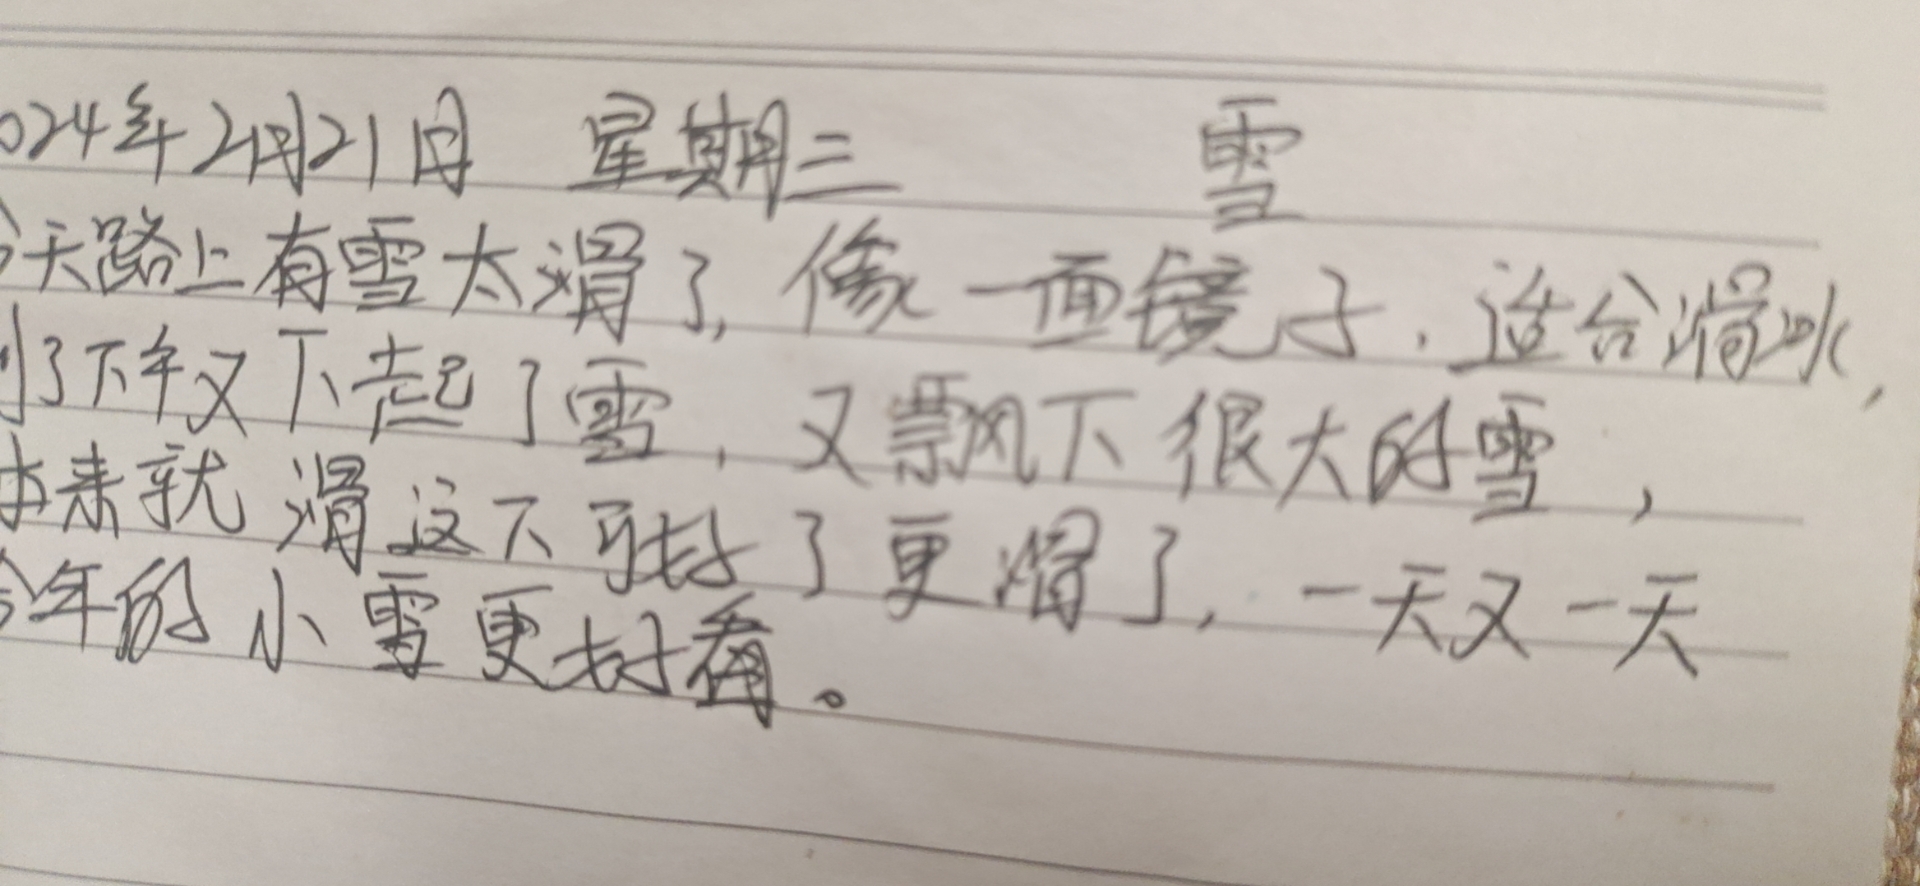 024年2月21日 星期三 雪
今天路上有雪太滑了,像一面镜子,适合滑冰,
到了下午又下起了雪,又飘下很大的雪,
本来就滑这下可好了更滑了,一天又一天
今年的小雪更好看。